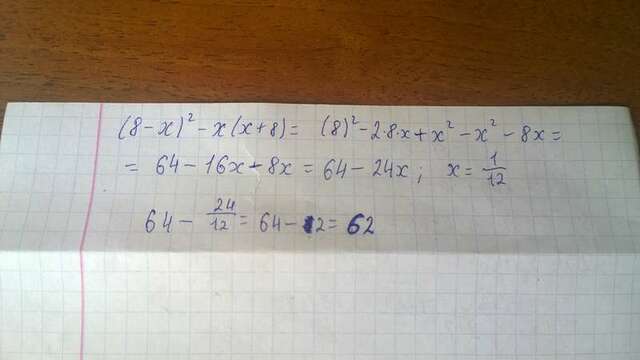 (8-x)² - x(x+8) = (8)² - 2·8·x + x² - x² - 8x =
= 64 - 16x + 8x = 64 - 24x ; x = 1/12
64 - 24/12 = 64 - 2 = 62